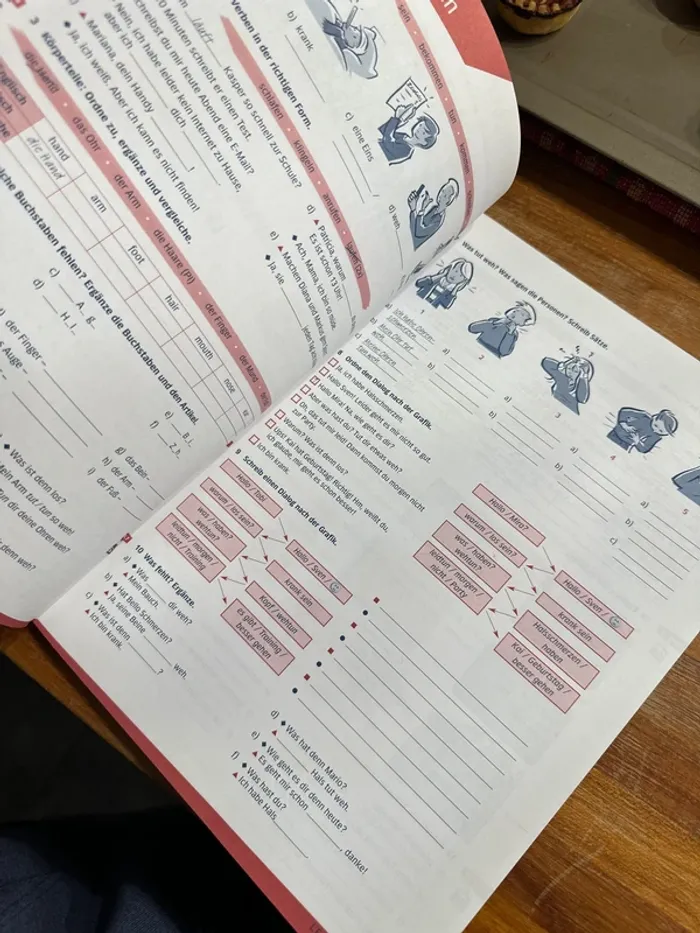 sein • bekommen • tun • kommen
Verben in der richtigen Form.
b) krank
c) eine Eins
d) weh
schlafen • klingeln • anrufen
läuft Kasper so schnell zur Schule?
10 Minuten schreibt er einen Test.
schreibst du mir heute Abend eine E-Mail?
Nein, ich habe leider kein Internet zu Hause,
aber ich
Mariana, dein Handy !
Ja, ich weiß. Aber ich kann es nicht finden!
d) Patricia, warum
Es ist schon 13 Uhr!
Ach, Mama, ich bin so müde.
e) Machen Diana und Markus
Ja, sie jeden Tag
3 Körperteile: Ordne zu, ergänze und vergleiche.
die Hand • das Ohr • der Arm • die Haare (Pl) • der Finger • der Mund
Englisch
hand
arm
foot
hair
mouth
nose
die Hand
Buchstaben fehlen? Ergänze die Buchstaben und den Artikel.
c) A_g_
d) H_l_
e) B_
f) Z_h_
der Finger –
s Auge –
g) das Bein –
h) der Arm –
i) der Fuß –
Was ist denn los?
Mein Arm tut / tun so weh!
tun dir deine Ohren weh?
denn weh?
Was tut weh? Was sagen die Personen? Schreib Sätze.
1
2
3
4
5
a) Ich habe Ohren-
schmerzen.
b)
weh.
c) Meine Ohren
tun weh.
a)
b)
a)
b)
a)
b)
a)
b)
c)
8 Ordne den Dialog nach der Grafik.
Ja, ich habe Halsschmerzen.
Hallo Sven! Leider geht es mir nicht so gut.
Hallo Mira! Na, wie geht es dir?
Aber was hast du? Tut dir etwas weh?
Oh, das tut mir leid! Dann kommst du morgen nicht
zur Party.
Warum? Was ist denn los?
Ups! Kai hat Geburtstag! Richtig! Hm, weißt du,
ich glaube, mir geht es schon besser!
Ich bin krank.
Hallo / Mira?
warum / los sein?
was / haben?
wehtun?
leidtun / morgen /
nicht / Party
Hallo / Sven /
krank sein
Halsschmerzen /
haben
Kai / Geburtstag /
besser gehen
9 Schreib einen Dialog nach der Grafik.
Hallo / Tobi
warum / los sein?
was / haben?
wehtun?
leidtun / morgen /
nicht / Training
Hallo / Sven /
krank sein
Kopf / wehtun
es gibt / Training /
besser gehen
10 Was fehlt? Ergänze.
a) Was dir weh?
Mein Bauch.
b) Hat Bello Schmerzen?
Ja, seine Beine weh.
c) Was ist denn ?
Ich bin krank.
d) Was hat denn Mario?
Hals tut weh.
e) Wie geht es dir denn heute?
Es geht mir schon , danke!
f) Was hast du?
Ich habe Hals